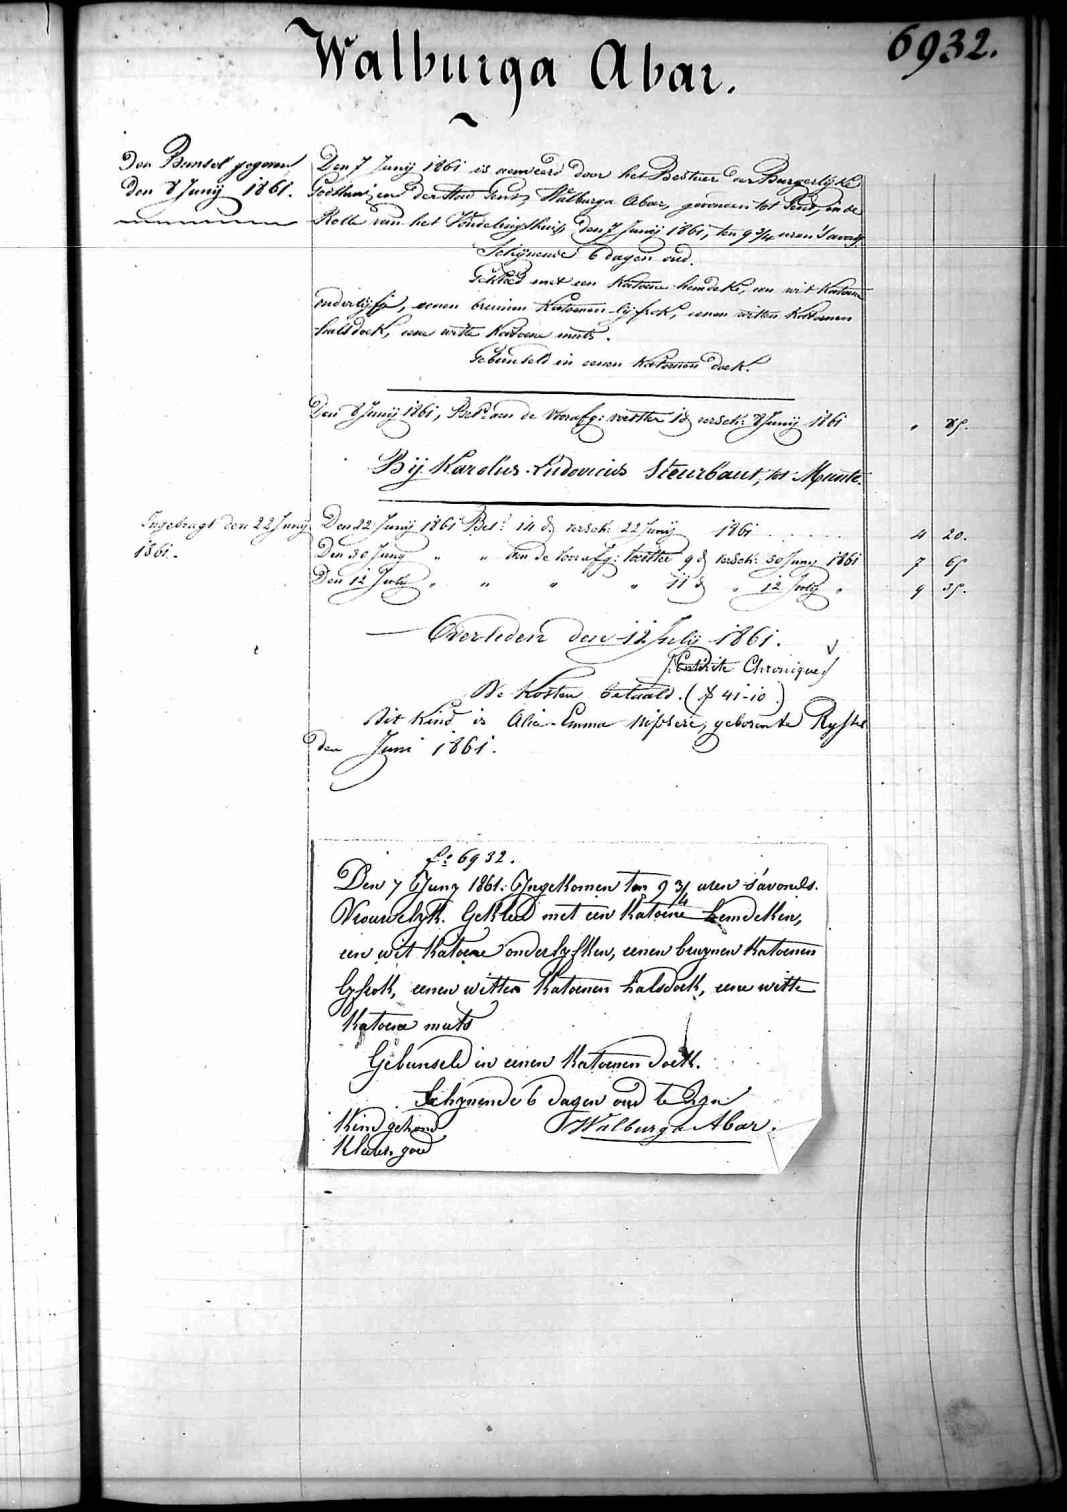 6932.
Walburga Abar.
Den Bunsel gegeven
den 8 Junij 1861.
Den 7 Junij 1861 is aenveerd door het Bestier der Burgerlijke
Godshuizen der Stad Gent, Walburga Abar, gevonden tot Gent, in de
Rolle van het Vondelingshuis den 7 Junij 1861, ten 9 3/4 uren 's avonds.
Schijnende 6 dagen oud.
Gekleed met een Katoene hemdeke, een wit Katoene
onderlijfje, eenen bruinen Katoenen lijfrok, eenen witten Katoenen
halsdoek, eene witte Katoene muts.
Gebunseld in eenen Katoenen doek.
Den 8 Junij 1861, Bet. aen de voorafg: voedster 1 d versch: 8 Junij 1861 " 85.
Bij Karolus Ludovicus Steurbaut, tot Munte.
Ingebragt den 22 Junij
1861.
Den 22 Junij 1861 Bet. 14 d versch: 22 Junij 1861 4 20.
Den 30 Junij " " aen de voorafg: voedster 9 d versch: 30 Junij 1861 7 65
Den 12 July " " " " 11 d " 12 July " 9 35.
Overleden den 12 Julij 1861.
(Entérite Chronique)
De Kosten betaald. (f 41-10)
Dit Kind is Emma geboren te Ryssel
den Juni 1861.
f° 6932.
Den 7 Juny 1861. Ingekomen ten 9 3/4 uren s'avonds.
Vrouwelyk. Gekleed met een Katoene hemdeken,
een wit Katoene onderlyfken, eenen bruynen Katoenen
lyfrok, eenen witten Katoenen halsdoek, eene witte
Katoene muts
Gebunseld in eenen Katoenen doek.
Schynende 6 dagen oud te zyn
Kind gezond Walburga Abar.
Kleeren goed